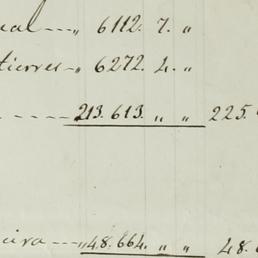 ual — " 6112. 7. "
tierres — " 6272. 4. "
---- " 213.613. " " 225.
eira --- " 48.664. " " 48.